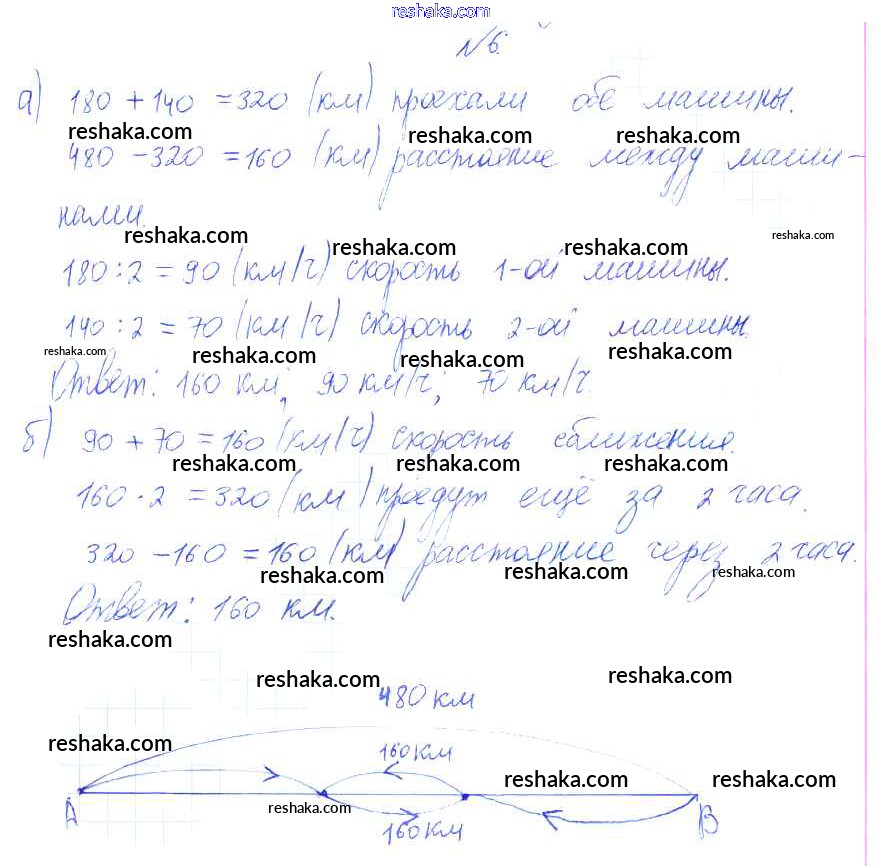 reshaka.com
№6.
а) 180 + 140 = 320 (км) проехали обе машины.
reshaka.com reshaka.com reshaka.com
480 - 320 = 160 (км) расстояние между маши-
нами.
reshaka.com reshaka.com reshaka.com reshaka.com
180 : 2 = 90 (км/ч) скорость 1-ой машины.
140 : 2 = 70 (км/ч) скорость 2-ой машины.
reshaka.com reshaka.com reshaka.com reshaka.com
Ответ: 160 км; 90 км/ч; 70 км/ч.
б) 90 + 70 = 160 (км/ч) скорость сближения.
reshaka.com reshaka.com reshaka.com
160 · 2 = 320 (км) проедут ещё за 2 часа.
320 - 160 = 160 (км) расстояние через 2 часа.
reshaka.com reshaka.com reshaka.com
Ответ: 160 км.
reshaka.com reshaka.com reshaka.com
480 км
reshaka.com 160 км
reshaka.com reshaka.com
А reshaka.com В
160 км